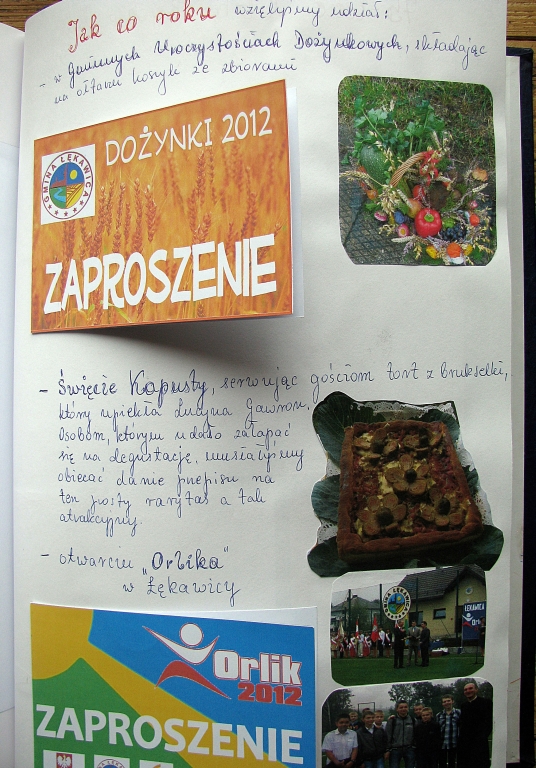 Jak co roku wzięłyśmy udział:
- w Gminnych Uroczystościach Dożynkowych, składając
na ołtarzu koszyk ze zbiorami
DOŻYNKI 2012
GMINA ŁĘKAWICA
ZAPROSZENIE
- Święcie Kapusty, serwując gościom tort z brukselki,
który upiekła Lucyna Gawron.
Osobom, którym udało załapać
się na degustację, musiałyśmy
obiecać danie przepisu na
ten prosty rarytas a tak
atrakcyjny.
- otwarciu „Orlika"
w Łękawicy
Orlik
2012
ZAPROSZENIE
GMINA
ŁĘKAWICA
ORLIK